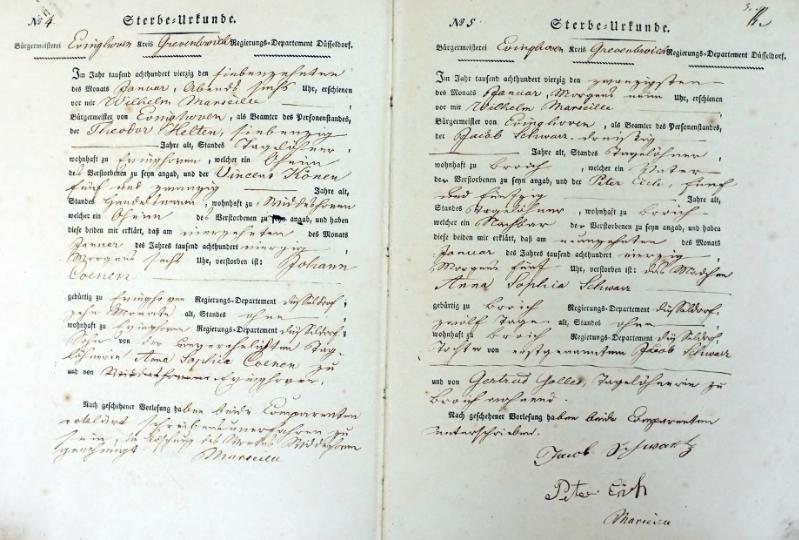 No 4.
Sterbe-Urkunde.
Bürgermeisterei Evinghoven Kreis Grevenbroich Regierungs-Departement Düsseldorf.
Im Jahr tausend achthundert vierzig den siebenzehnten
des Monats Januar, Abends sechs Uhr, erschienen
vor mir Wilhelm Marseille
Bürgermeister von Evinghoven, als Beamter des Personenstandes,
der Theodor Hilten, siebenzig
Jahre alt, Standes Tagelöhner,
wohnhaft zu Evinghoven, welcher ein Oheim
des Verstorbenen zu seyn angab, und der Vincens Könen
fünf und zwanzig Jahre alt,
Standes Handelsmann, wohnhaft zu Widdeshoven
welcher ein Oheim des Verstorbenen zu seyn angab, und haben
diese beiden mir erklärt, daß am vierzehnten des Monats
Januar des Jahres tausend achthundert vierzig,
Morgens sechs Uhr, verstorben ist: Johann
Coenen
gebürtig zu Evinghoven Regierungs-Departement Düsseldorf,
zehn Monate alt, Standes ohne,
wohnhaft zu Evinghoven Regierungs-Departement Düsseldorf,
Sohn von der unverehelichten Tag-
löhnerin Anna Sophia Coenen zu
und von Widdeshoven Evinghoven.
Nach geschehener Vorlesung haben beide Comparenten
erklärt schreibensunerfahren zu
sein, die des Wortes Widdeshoven
genehmigt Marseille
No 5.
Sterbe-Urkunde.
Bürgermeisterei Evinghoven Kreis Grevenbroich Regierungs-Departement Düsseldorf.
Im Jahr tausend achthundert vierzig den zwanzigsten
des Monats Januar, Morgens neun Uhr, erschienen
vor mir Wilhelm Marseille
Bürgermeister von Evinghoven, als Beamter des Personenstandes,
der Jacob Schwarz, dreißig
Jahre alt, Standes Tagelöhner,
wohnhaft zu Broich, welcher ein Vater
der Verstorbenen zu seyn angab, und der Peter Esch, fünf
und fünfzig Jahre alt,
Standes Tagelöhner, wohnhaft zu Broich
welcher ein Nachbar der Verstorbenen zu seyn angab, und haben
diese beiden mir erklärt, daß am neunzehnten des Monats
Januar des Jahres tausend achthundert vierzig,
Morgens fünf Uhr, verstorben ist: das Mädchen
Anna Sophia Schwarz
gebürtig zu Broich Regierungs-Departement Düsseldorf,
zwölf Tage alt, Standes ohne
wohnhaft zu Broich Regierungs-Departement Düsseldorf,
Tochter von erstgenanntem Jacob Schwarz
und von Gertrud Golles, Tagelöhnerin zu
Broich wohnend.
Nach geschehener Vorlesung haben beide Comparenten
unterschrieben.
Jacob Schwartz
Peter Esch
Marseille